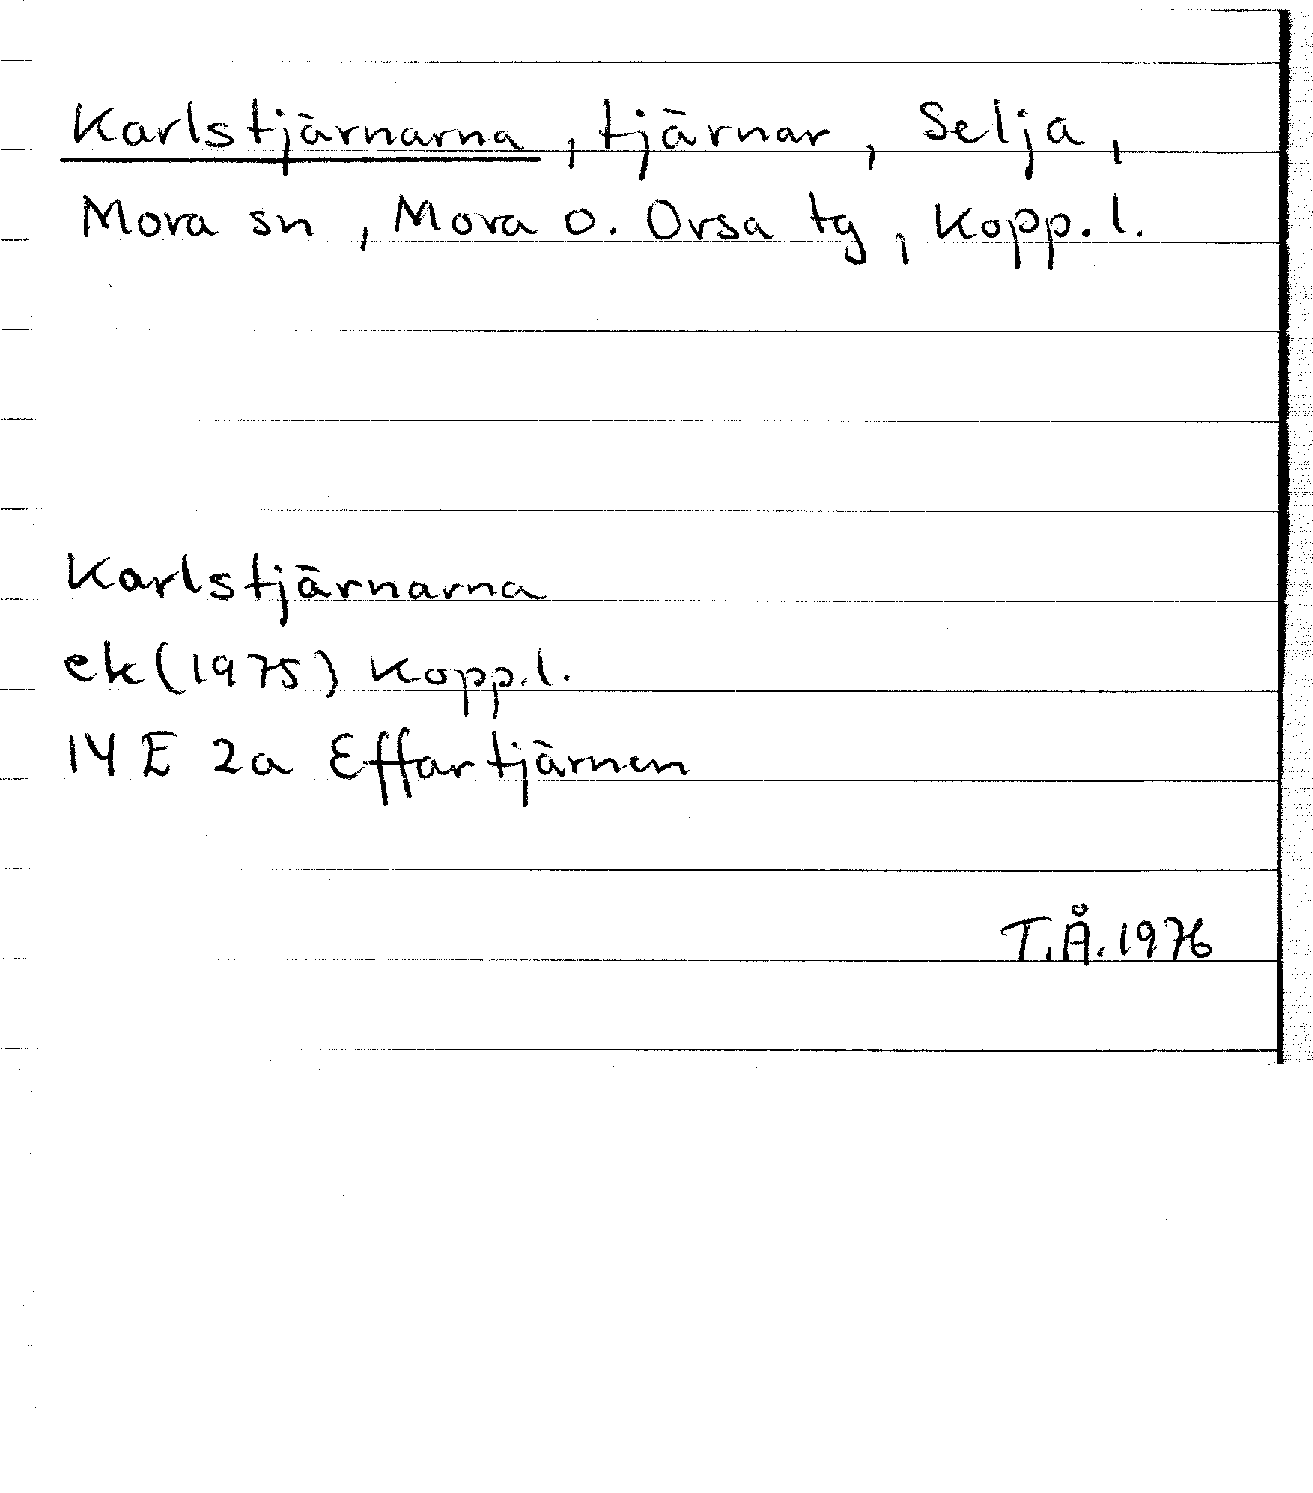 Karlstjärnarna, tjärnar, Selja,
Mora sn, Mora o. Orsa tg, Kopp. l.
Karlstjärnarna
ek (1975) Kopp. l.
14 E 2a Effartjärnen
T.Å. 1976